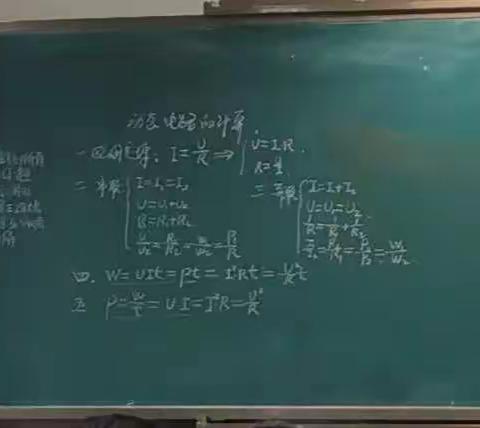 动态电路的计算
一 欧姆定律: I=U/R ⇒ { U=IR
R=U/I
二 串联 { I=I₁=I₂
U=U₁+U₂
R=R₁+R₂
U₁/U₂=R₁/R₂=W₁/W₂=P₁/P₂
三 并联 { I=I₁+I₂
U=U₁=U₂
1/R=1/R₁+1/R₂
I₁/I₂=R₂/R₁=P₁/P₂=W₁/W₂
四. W=UIt=Pt=I²Rt=U²/R t
五 P=W/t=UI=I²R=U²/R